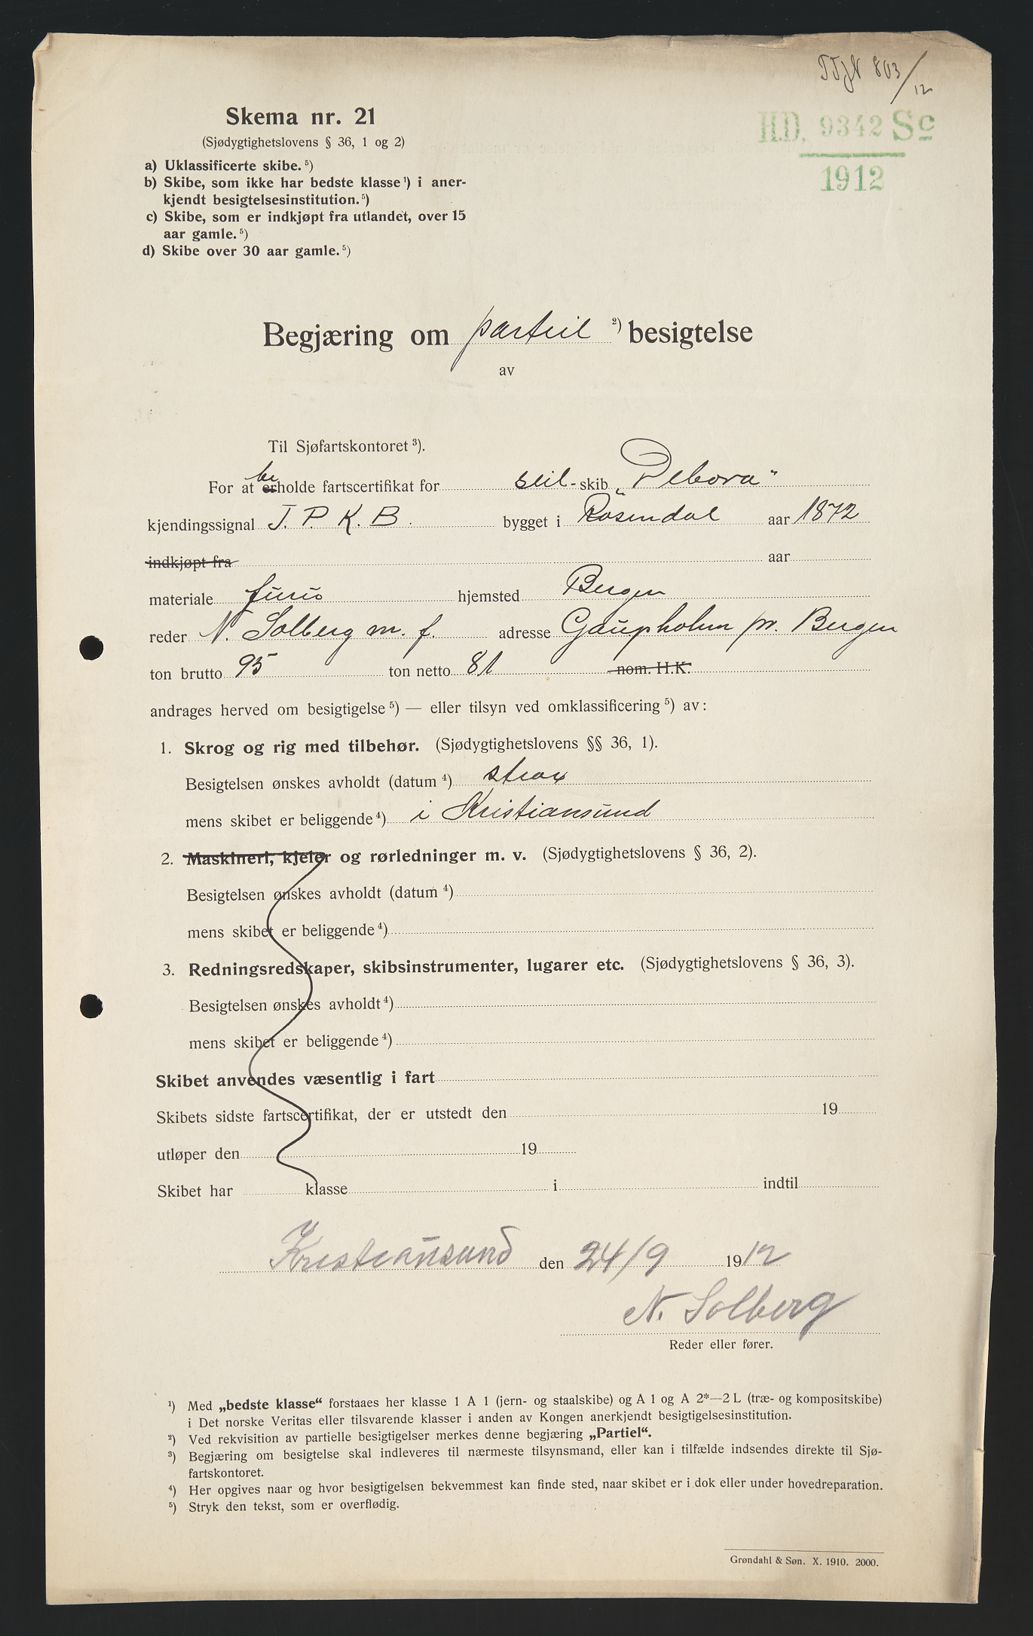 TTJN 803/12
H.D. 9342 Sc
1912
Skema nr. 21
(Sjødygtighetslovens § 36, 1 og 2)
a) Uklassificerte skibe.⁵)
b) Skibe, som ikke har bedste klasse¹) i aner-
kjendt besigtelsesinstitution.⁵)
c) Skibe, som er indkjøpt fra utlandet, over 15
aar gamle.⁵)
d) Skibe over 30 aar gamle.⁵)
Begjæring om partiel ²) besigtelse
av
Til Sjøfartskontoret³).
For at beholde fartscertifikat for seil-skib „Debora"
kjendingssignal J. P. K. B. bygget i Rosendal aar 1872
indkjøpt fra aar
materiale furu hjemsted Bergen
reder N. Solberg m. f. adresse Gaupholm pr. Bergen
ton brutto 95 ton netto 81 nom. H.K.
andrages herved om besigtigelse⁵) — eller tilsyn ved omklassificering⁵) av:
1. Skrog og rig med tilbehør. (Sjødygtighetslovens §§ 36, 1).
Besigtelsen ønskes avholdt (datum⁴) strax
mens skibet er beliggende⁴) i Kristiansund
2. Maskineri, kjeler og rørledninger m. v. (Sjødygtighetslovens § 36, 2).
Besigtelsen ønskes avholdt (datum⁴)
mens skibet er beliggende⁴)
3. Redningsredskaper, skibsinstrumenter, lugarer etc. (Sjødygtighetslovens § 36, 3).
Besigtelsen ønskes avholdt⁴)
mens skibet er beliggende⁴)
Skibet anvendes væsentlig i fart
Skibets sidste fartscertifikat, der er utstedt den 19
utløper den 19
Skibet har klasse i indtil
Kristiansund den 24/9 1912
N. Solberg
Reder eller fører.
¹) Med „bedste klasse“ forstaaes her klasse 1 A 1 (jern- og staalskibe) og A 1 og A 2*—2 L (træ- og kompositskibe)
i Det norske Veritas eller tilsvarende klasser i anden av Kongen anerkjendt besigtigelsesinstitution.
²) Ved rekvisition av partielle besigtigelser merkes denne begjæring „Partiel“.
³) Begjæring om besigtelse skal indleveres til nærmeste tilsynsmand, eller kan i tilfælde indsendes direkte til Sjø-
fartskontoret.
⁴) Her opgives naar og hvor besigtigelsen bekvemmest kan finde sted, naar skibet er i dok eller under hovedreparation.
⁵) Stryk den tekst, som er overflødig.
Grøndahl & Søn. X. 1910. 2000.